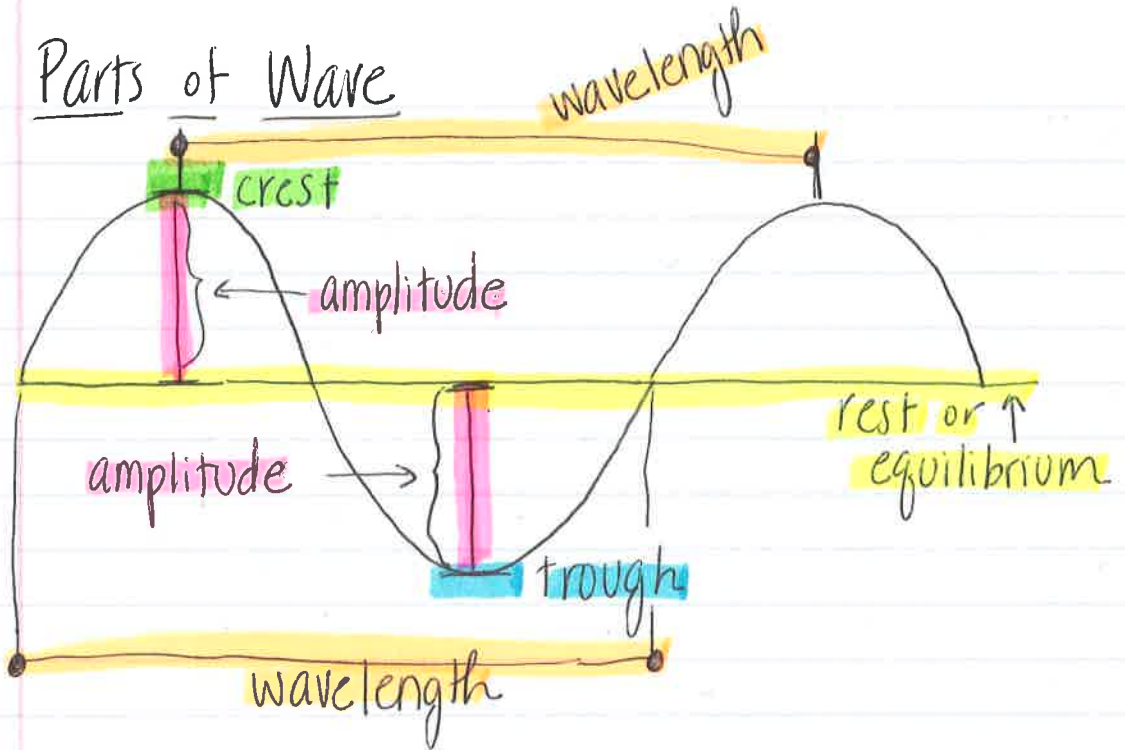 Parts of Wave
wavelength
crest
amplitude
rest or
equilibrium
amplitude
trough
wavelength